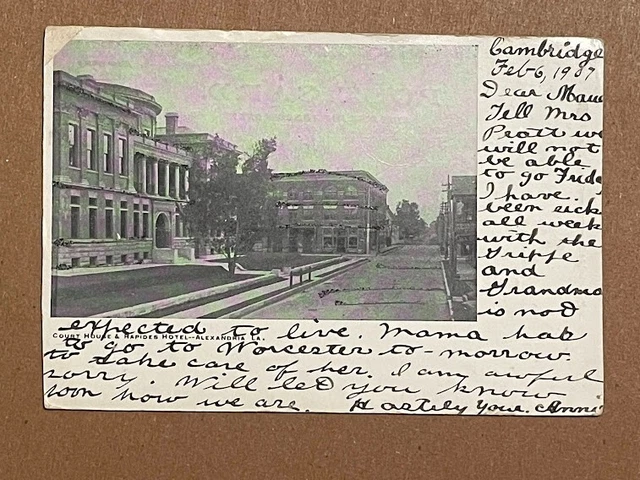 Cambridge
Feb 6, 1907
Dear Maud
Tell Mrs
Pratt we
will not
be able
to go Frida
I have
been sick
all week
with the
Grippe
and
Grandma
is not
expected to live. Mama has
COURT HOUSE & RAPIDES HOTEL--ALEXANDRIA LA.
to go to Worcester to-morrow.
to take care of her. I am awful
sorry. Will let you know
soon how we are. Hastely your. Anna